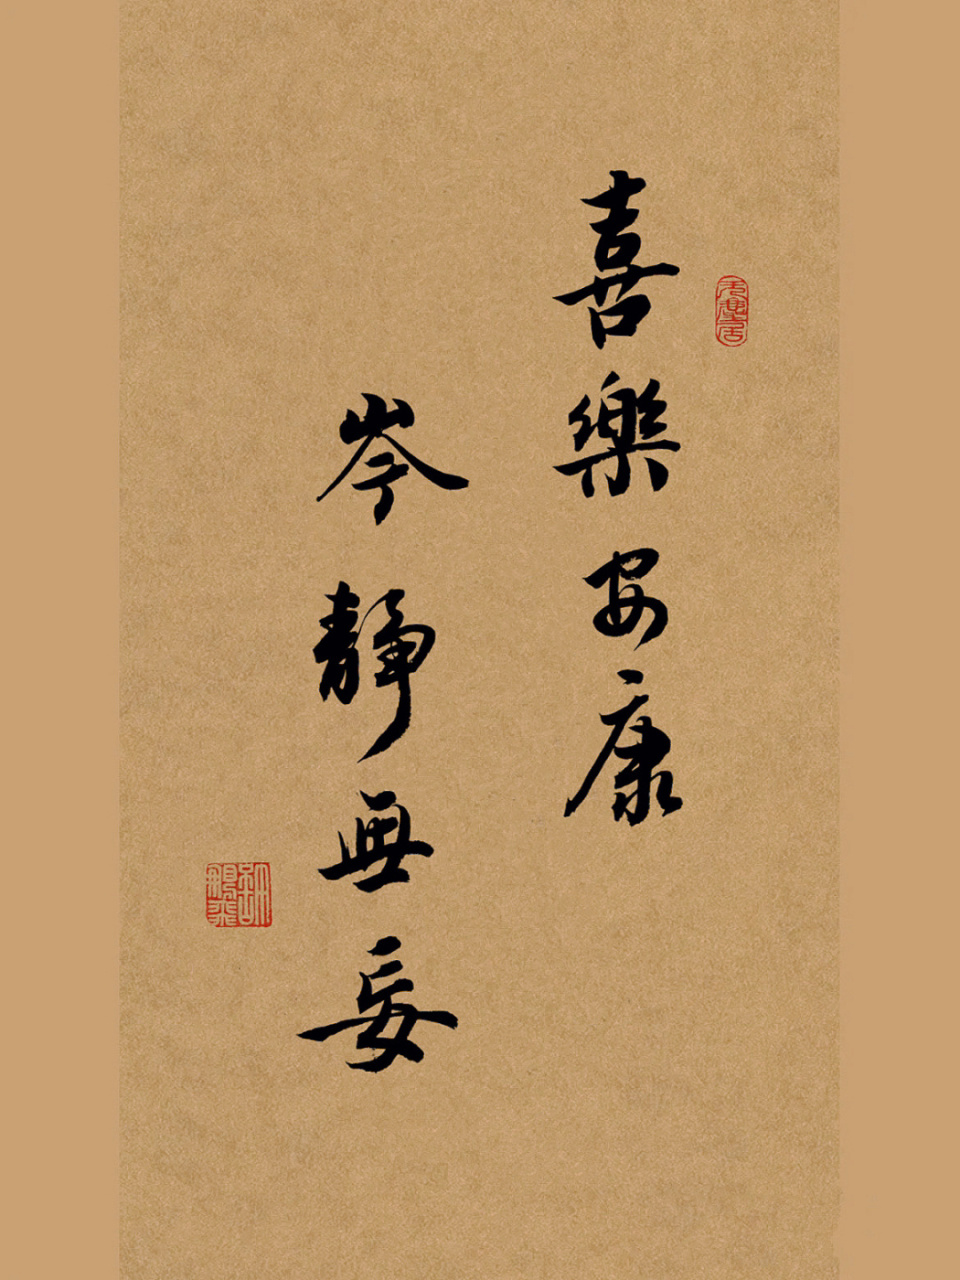 喜樂安康
岑靜無妄